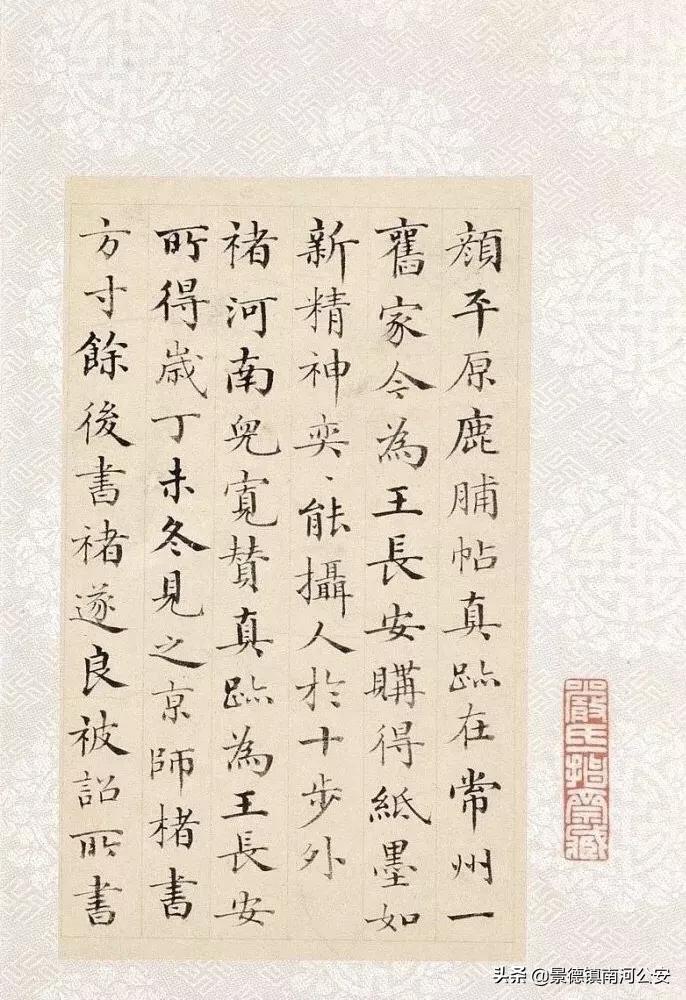 顔平原鹿脯帖真跡在常州一
舊家今為王長安購得紙墨如
新精神奕、能攝人於十步外
褚河南兒寬贊真跡為王長安
所得歲丁未冬見之京師楮書
方寸餘後書褚遂良被詔所書
头条 @景德镇南河公安